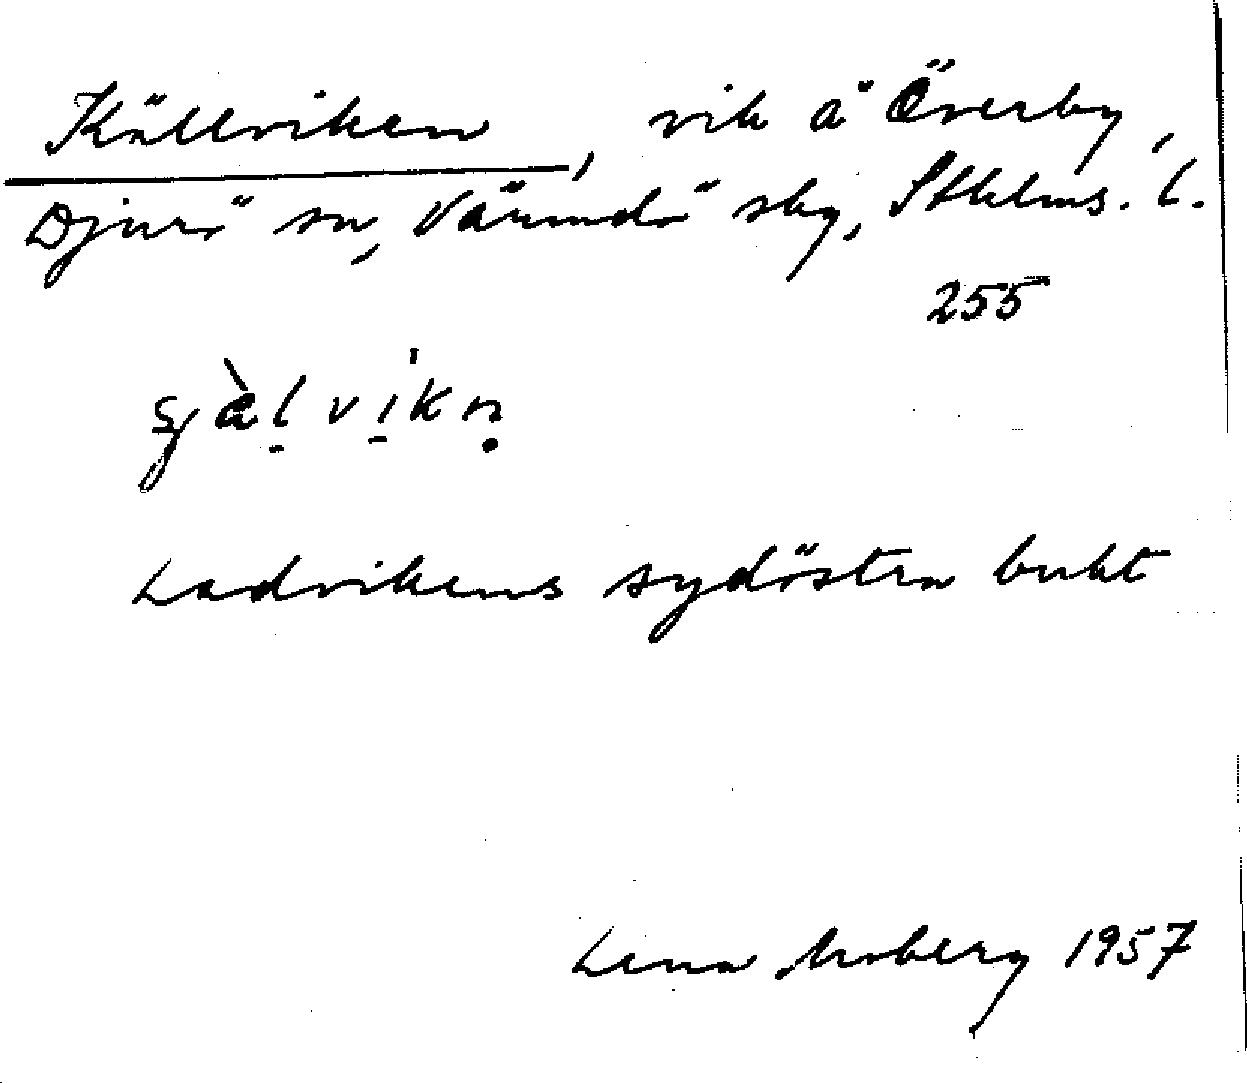 Källviken, vik å Överby,
Djurö sn, Värmdö skg, Sthlms. l.
255
Ladvikens sydöstra bukt
Lena Moberg 1957